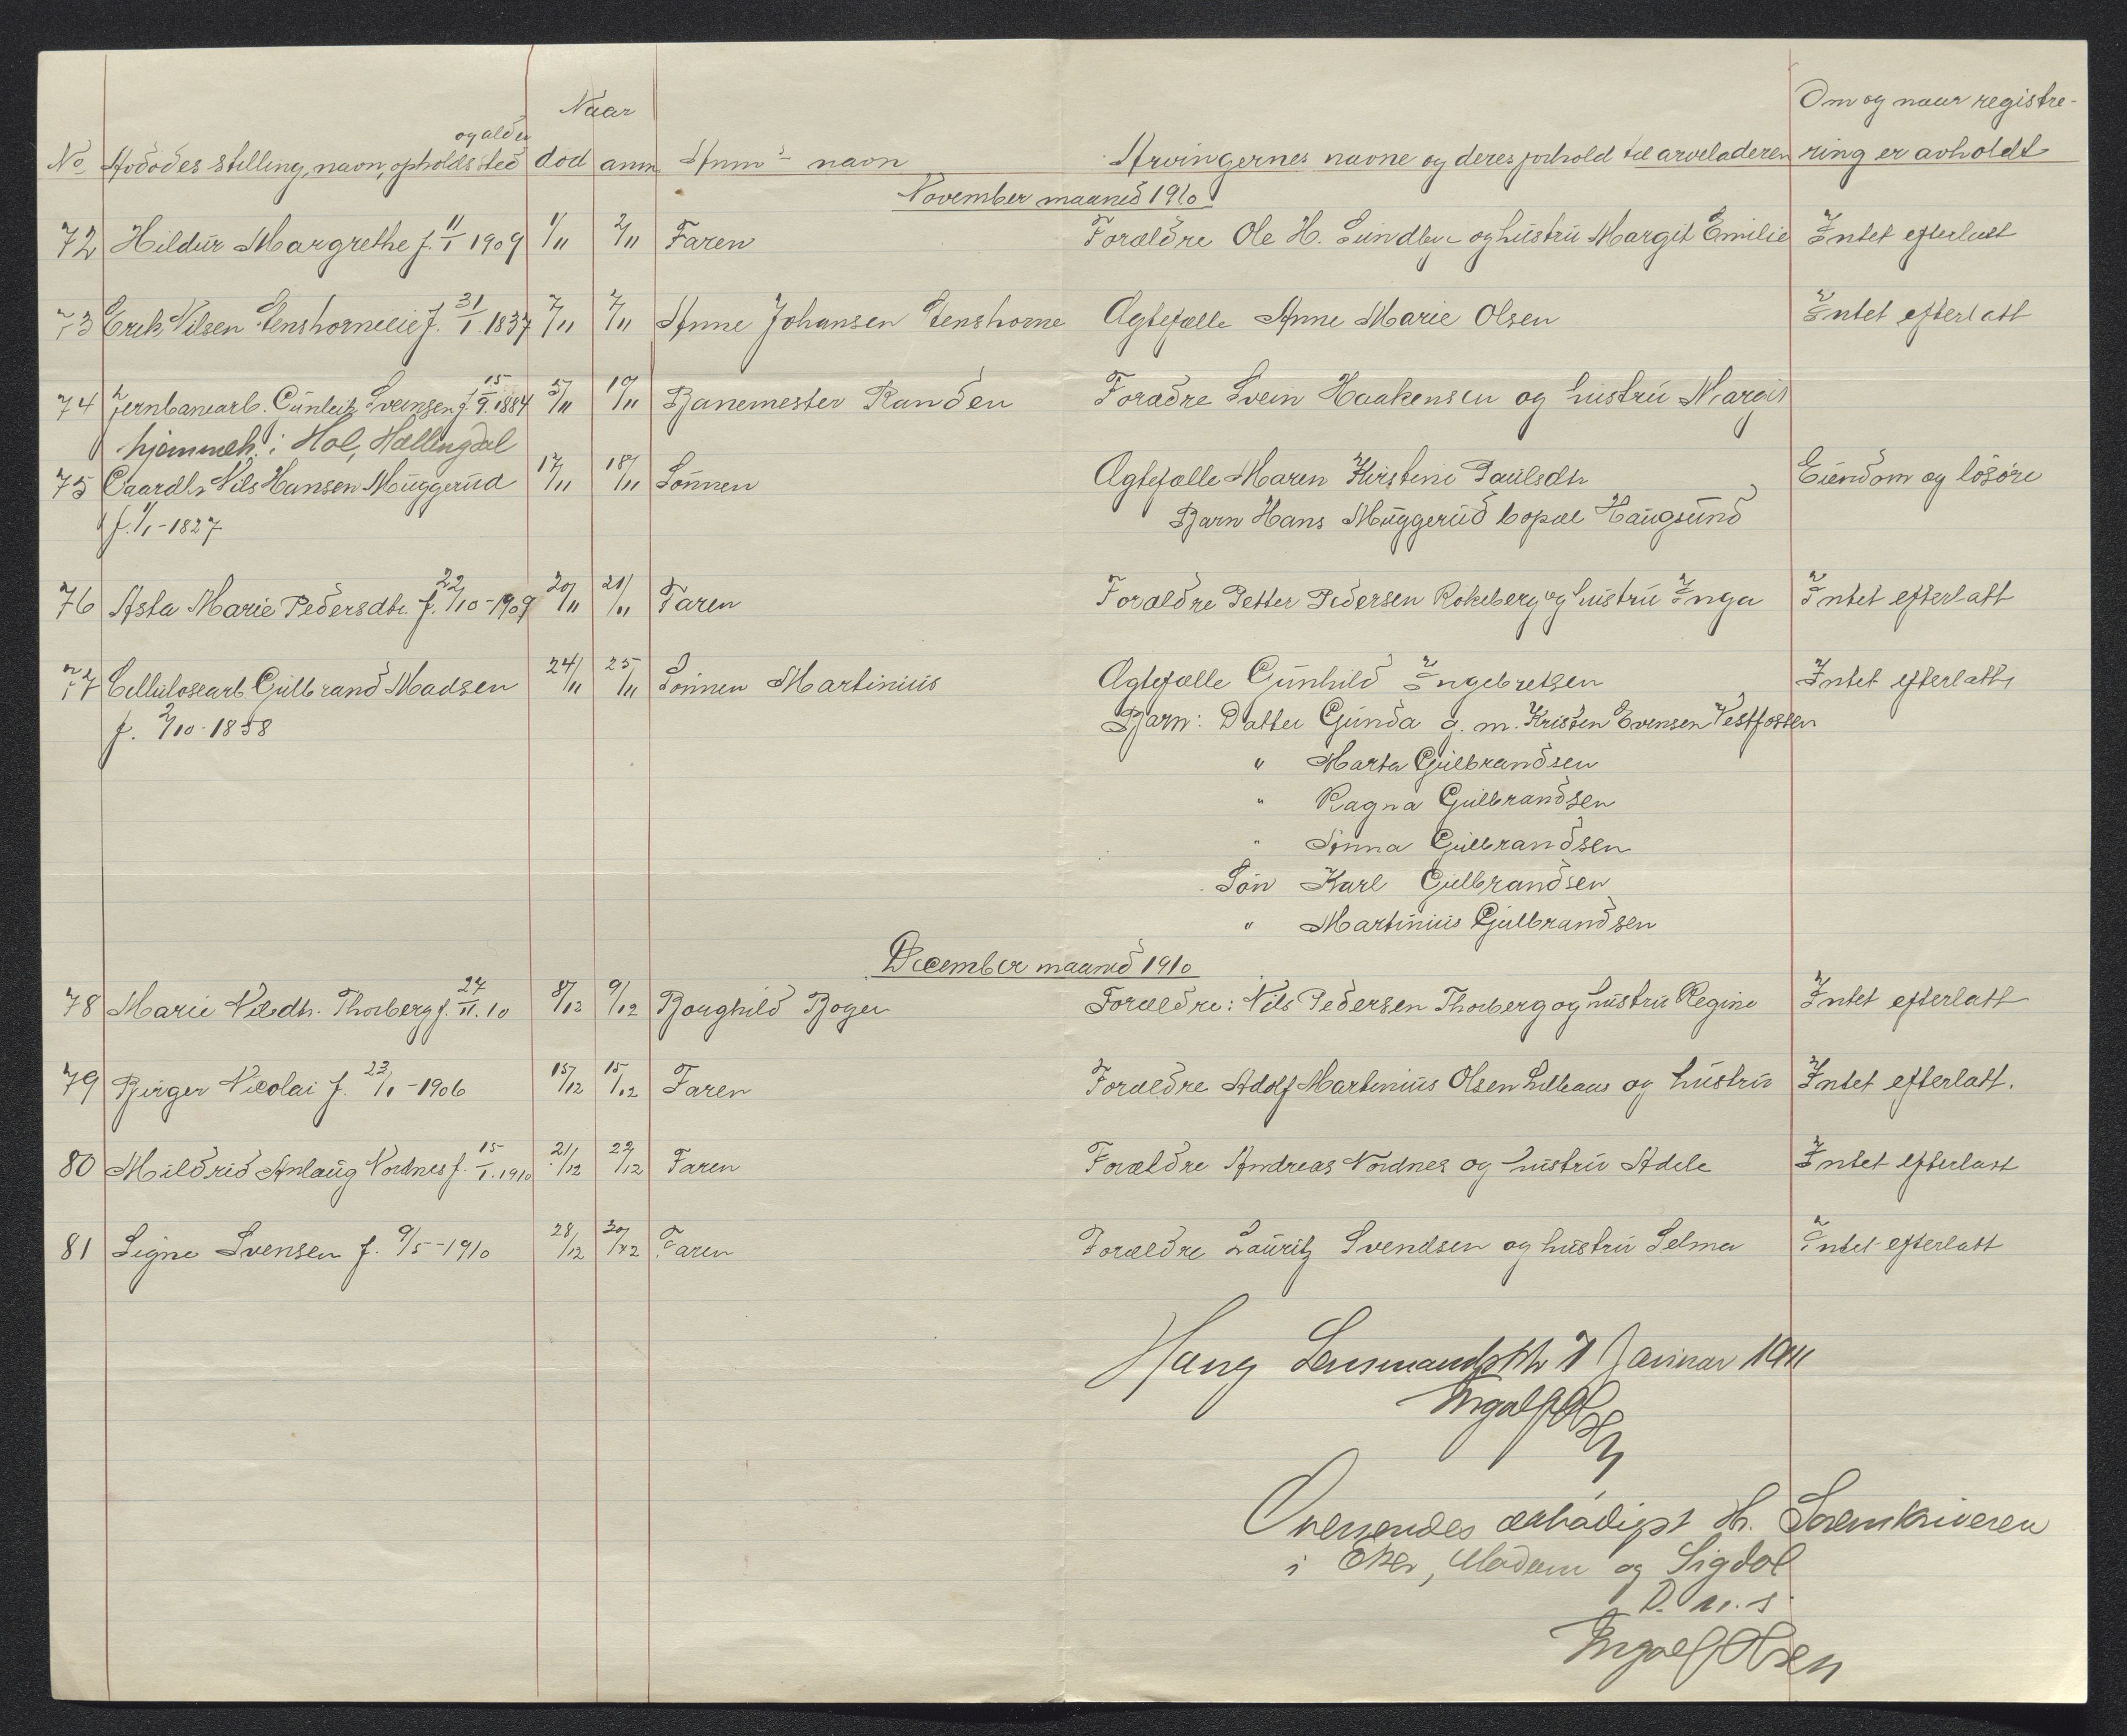 Naar
Om og naar registre-
og alder
No Avdödes stilling, navn, opholdssted död anm Anm's navn Arvingernes navne og deres forhold til arveladeren ring er avholdt
November maaned 1910
72 Hildur Margrethe f. 11/I 1909 1/11 2/11 Faren Forældre Ole H. Lundby og hustru Margit Emilie Intet efterlatt
73 Erik Nilsen Stenshorneeie f. 31/I 1837 7/11 7/11 Anne Johansen Stenshorne Ægtefælle Anne Marie Olsen Intet efterlatt
74 Jernbanearb. Gunleik Sveinsen f. 15/9. 1884 5/11 10/11 Banemester Randen Foraldre Svein Haakensen og hustru Margit
hjemmeh. i Hol, Hallingdal
75 Gaardbr Nils Hansen Muggerud 17/11 18/11 Sönnen Ægtefælle Maren Kirstine Paulsdtr Eiendom og lösöre
f. 1/1-1827 Barn Hans Muggerud bopæl Haugsund
76 Asta Marie Pedersdtr. f. 22/10-1909 20/11 21/11 Faren Forældre Petter Pedersen Rokeberg og hustru Inga Intet efterlatt
77 Cellulosearb. Gulbrand Madsen 24/11 25/11 Sönnen Martinius Ægtefælle Gunhild Ingebretsen Intet efterlatt
f. 2/10-1858 Barn: Datter Gunda g. m. Kristen Evensen Vestfossen
" Marta Gulbrandsen
" Ragna Gulbrandsen
" Anna Gulbrandsen
Sön Karl Gulbrandsen
" Martinius Gulbrandsen
December maaned 1910
78 Marie Nilsdtr. Thorberg f. 27/11. 10 8/12 9/12 Borghild Boger Forældre: Nils Pedersen Thorberg og hustru Regine Intet efterlatt
79 Birger Nicolai f. 23/1-1906 15/12 15/12 Faren Forældre Adolf Martinius Olsen Lilleaas og hustru Intet efterlatt.
80 Mildrid Anlaug Nordnes f. 15/I. 1910 21/12 22/12 Faren Forældre Andreas Nordnes og hustru Adele Intet efterlatt
81 Signe Svensen f. 9/5-1910 28/12 30/12 Faren Forældre Lauritz Svendsen og hustru Selma Intet efterlatt
Haug Lensmandsktr 7 Januar 1911
Ingolf Olsen
Oversendes ærbødigst Hr. Sorenskriveren
i Eker, Modum og Sigdal
D. u. s.
Ingolf Olsen